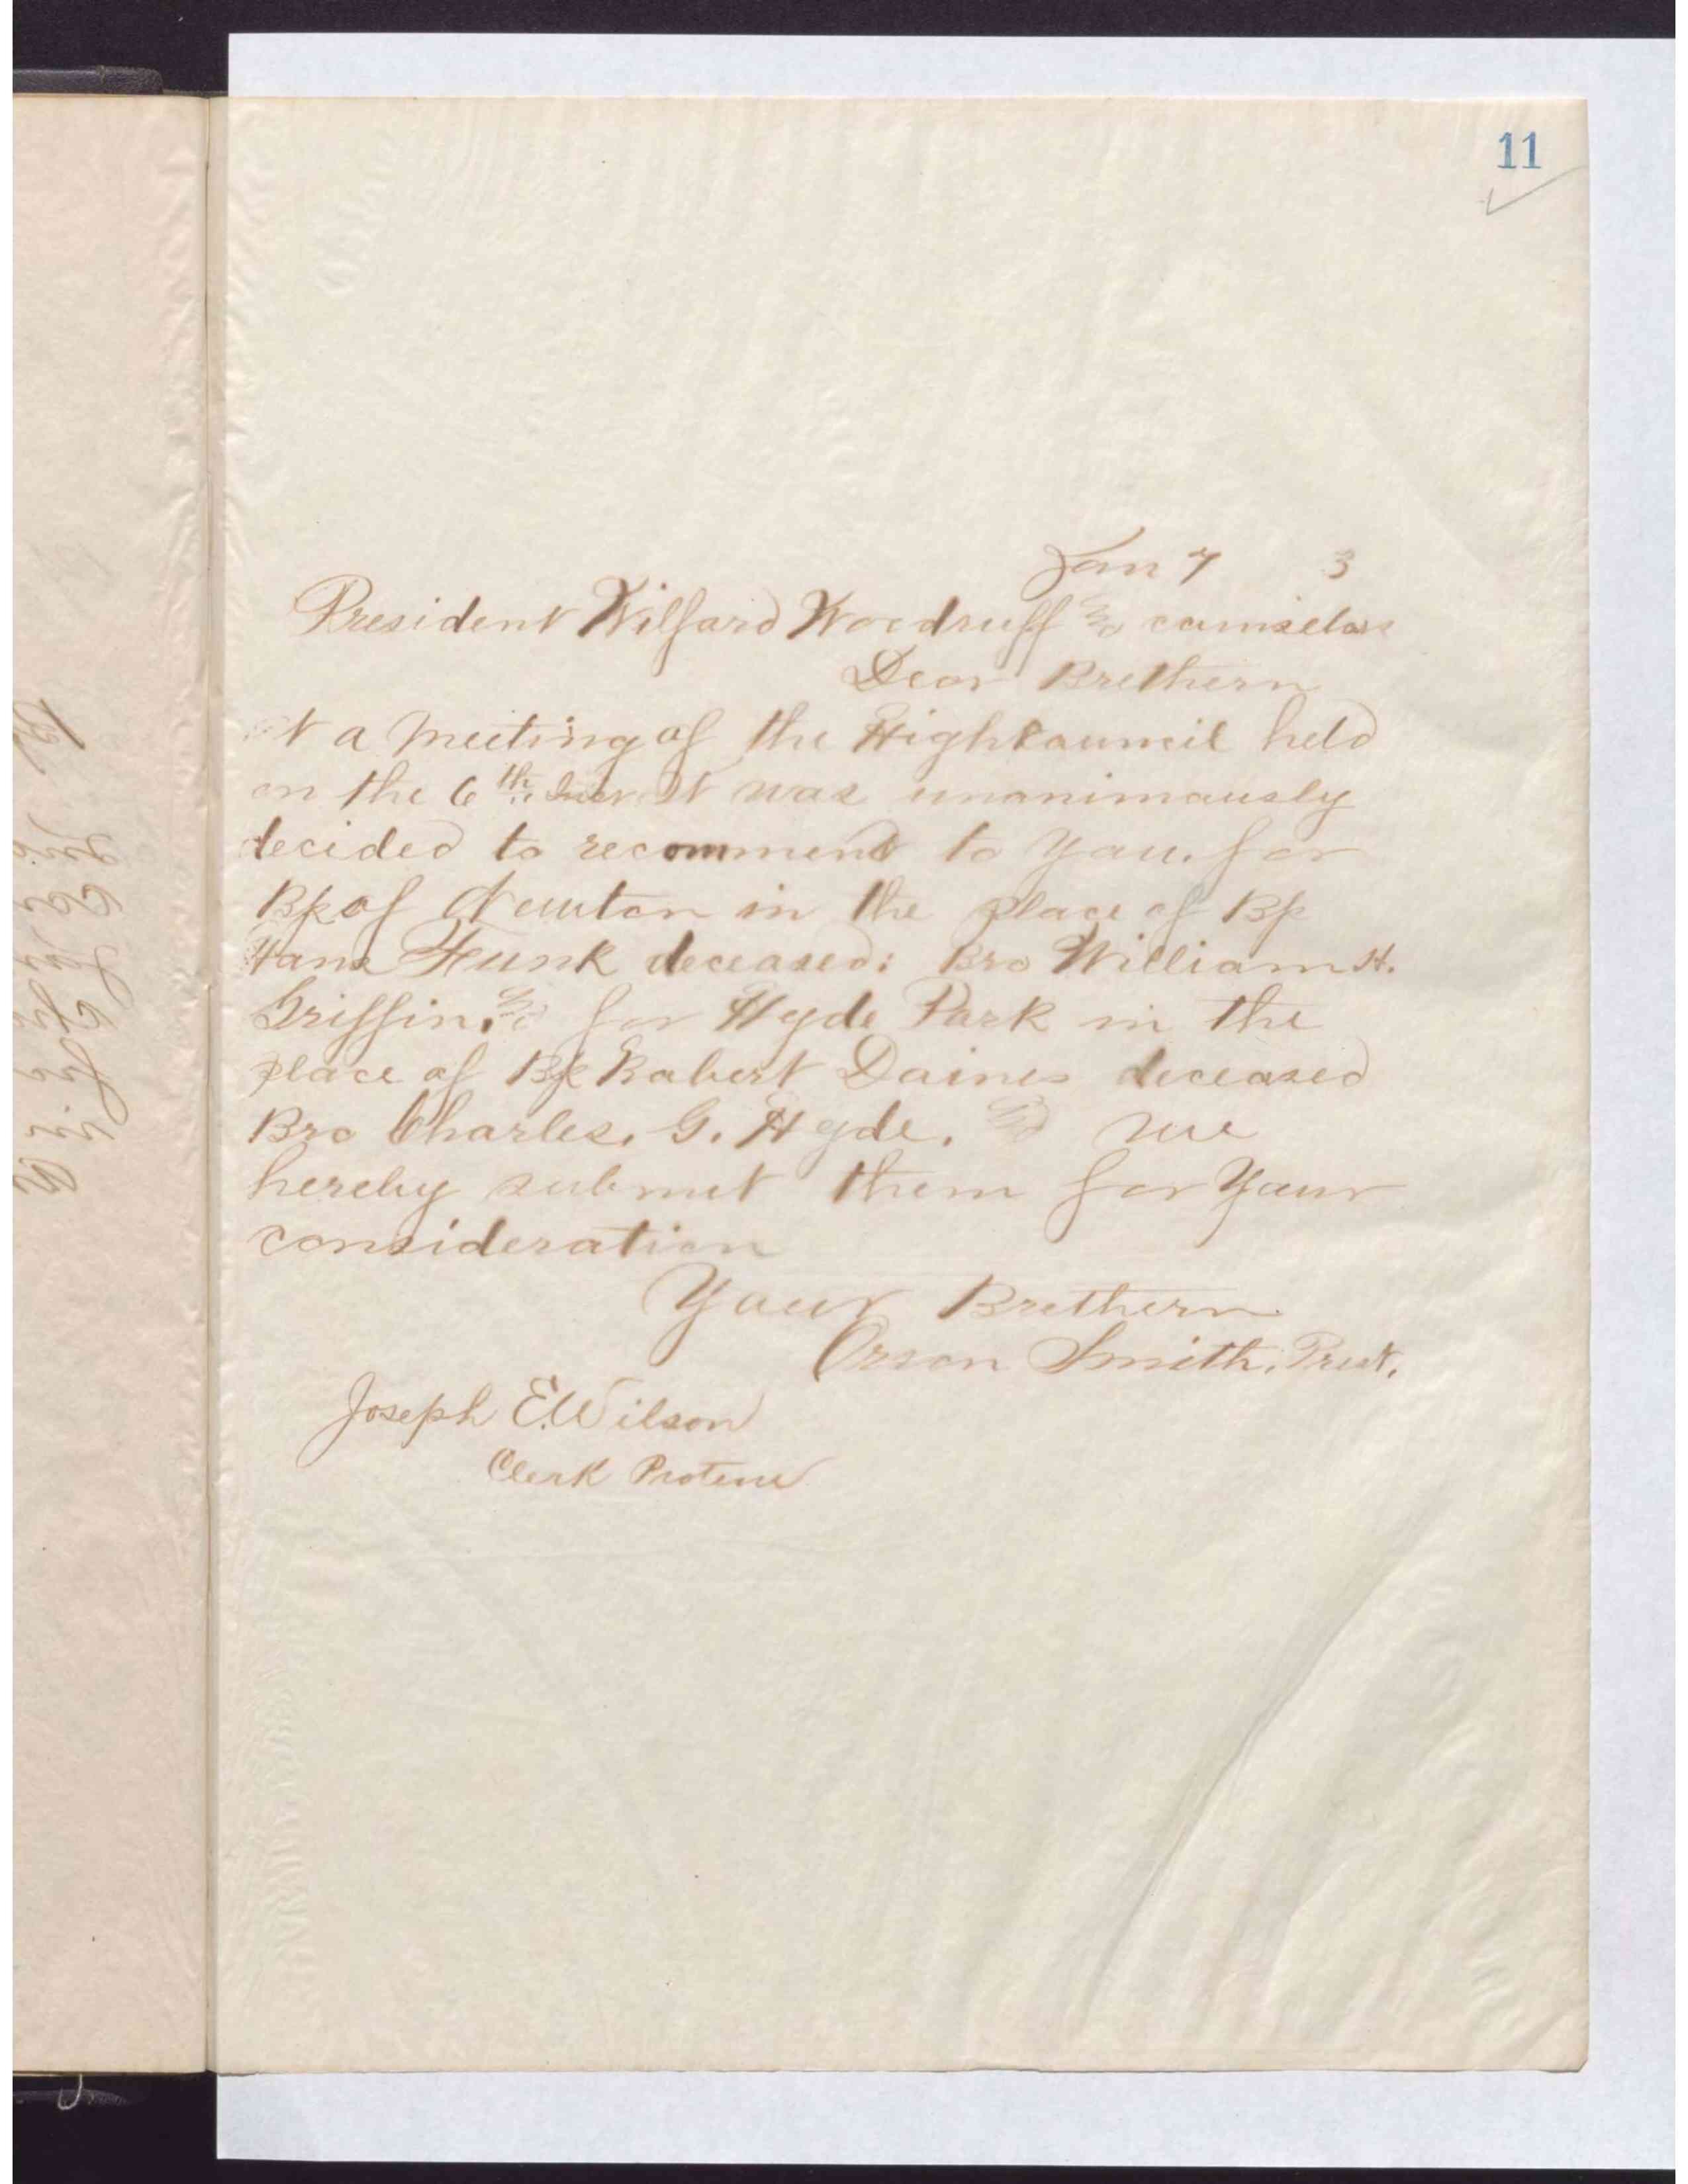 11
Jan 7 3
President Wilford Woodruff & counselors
Dear Brethern
At a meeting of the High Council held
on the 6th Inst It was unanimously
decided to recommend to You. for
Bp of Newton in the place of Bp
Hans Funk deceased: Bro William H.
Griffin. & for Hyde Park in the
place of Bp Robert Daines deceased
Bro Charles. G. Hyde. & we
hereby submit them for Your
consideration
Your Brethern
Orson Smith. Prest.
Joseph E. Wilson
Clerk Protem